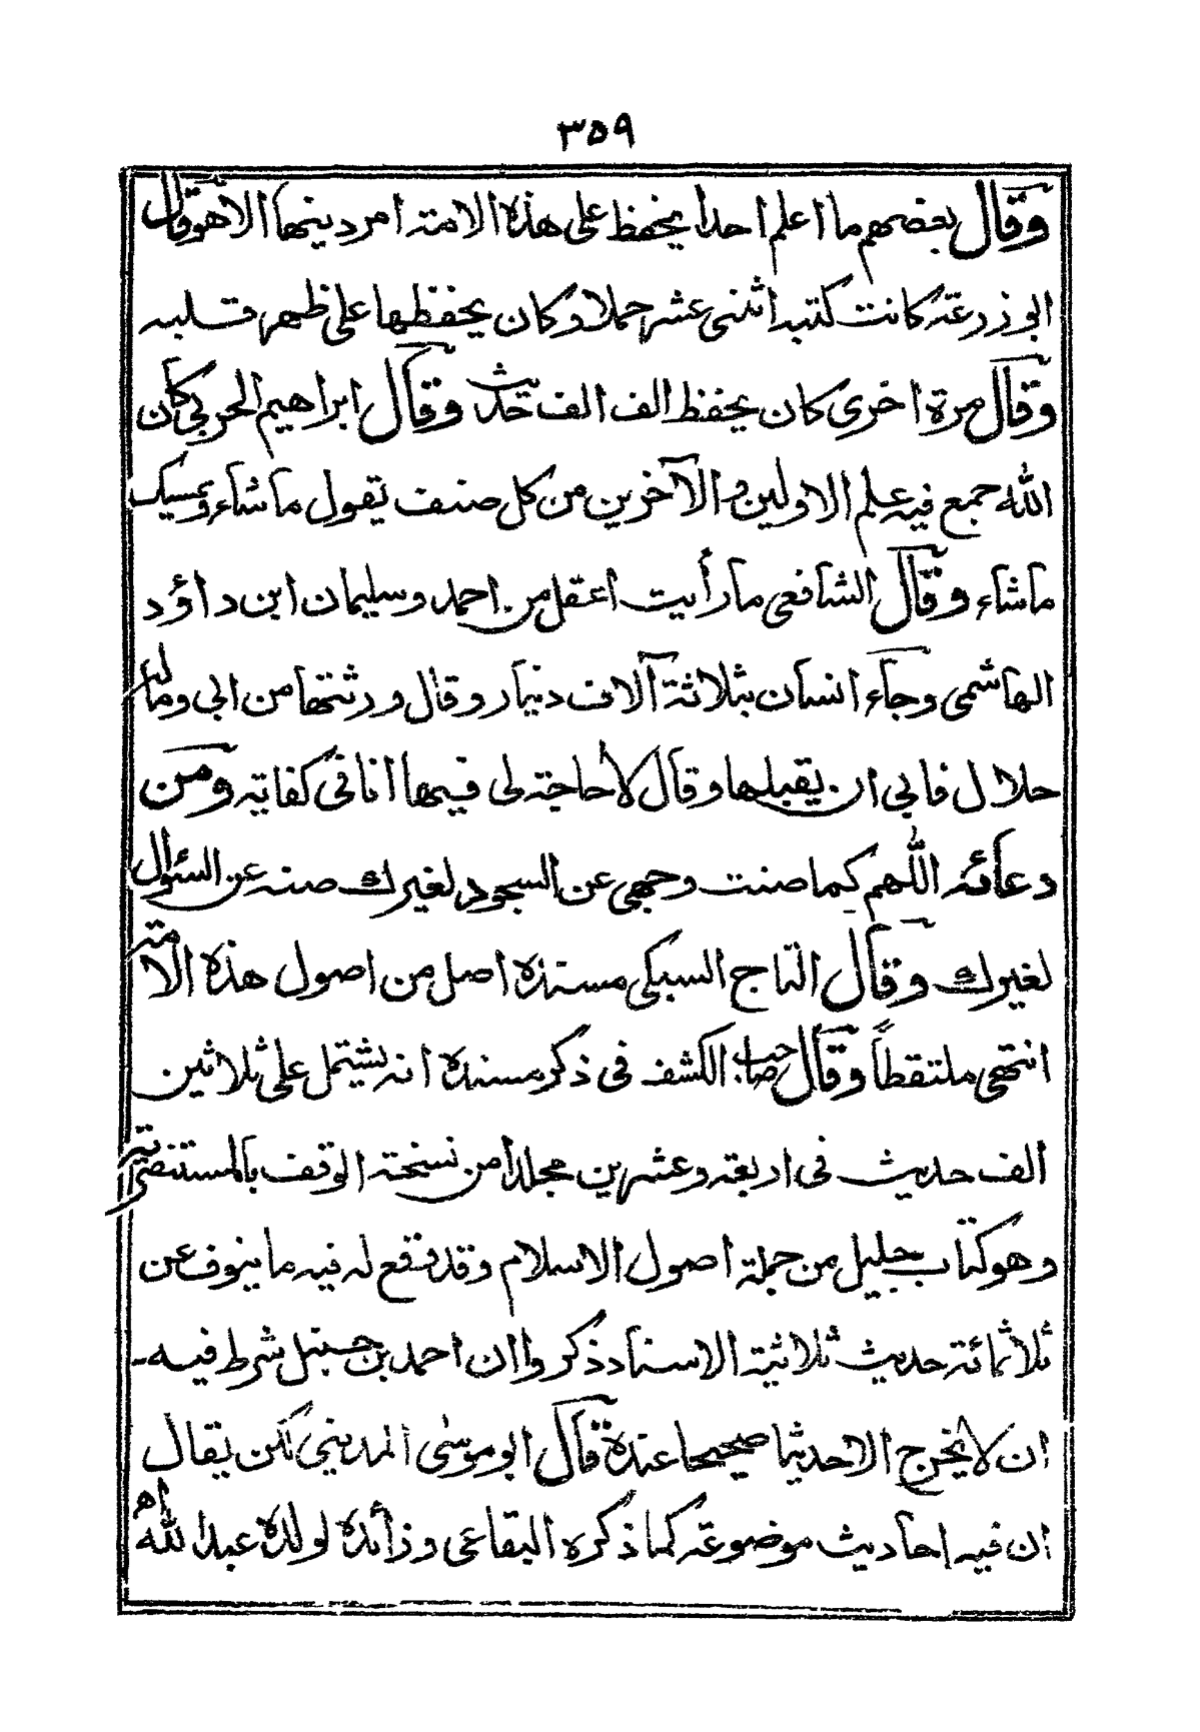 ٣٥٩
وقال بعضهم ما اعلم احدا يحفظ على هذه الامة امر دينها الا هو وقال
ابو زرعة كانت كتبه اثنى عشر حملا وكان يحفظها على ظهر قلبه
وقال مرة اخرى كان يحفظ الف الف حديث وقال ابراهيم الحربي كان
الله جمع فيه علم الاولين والآخرين من كل صنف يقول ما شاء ويمسك
ما شاء وقال الشافعى ما رأيت اعقل من احمد وسليمان ابن داؤد
الهاشمى وجاء انسان بثلاثة آلاف دينار وقال ورثتها من ابى وماله
حلال فابي ان يقبلها وقال لا حاجة لى فيها انا فى كفاية ومن
دعائه اللهم كما صنت وجهى عن السجود لغيرك صنه عن السئوال
لغيرك وقال التاج السبكى مسنده اصل من اصول هذه الامة
انتهى ملتقطاً وقال صاحب الكشف فى ذكر مسنده انه يشتمل على ثلاثين
الف حديث فى اربعة وعشرين مجلداً من نسخة الوقف بالمستنصرية
وهو كتاب جليل من جملة اصول الاسلام وقد وقع له فيه ما ينوف عن
ثلاثمائة حديث ثلاثية الاسناد ذكروا ان احمد بن حنبل شرط فيه
ان لا يخرج الا حديثا صحيحا عنده قال ابو موسى المدينى لكن يقال
ان فيه احاديث موضوعة كما ذكره البقاعى وزائده لولده عبد الله اه